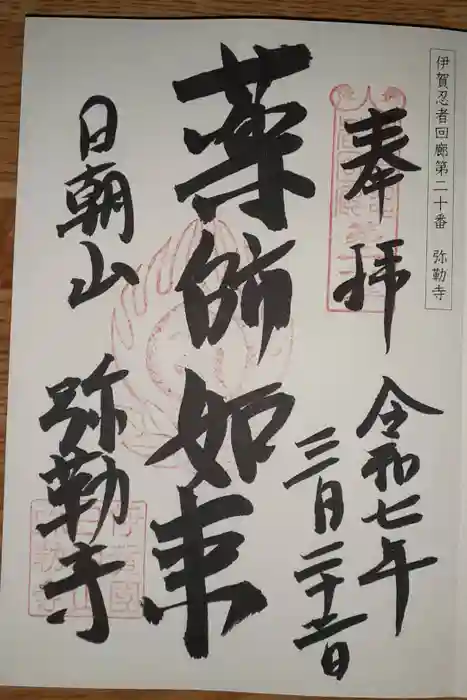 伊賀忍者回廊第二十番 弥勒寺
奉拝
令和七年
三月二十二日
薬師如来
日朝山
弥勒寺